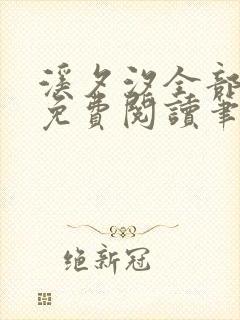 溪夕汐全部
免费閱讀筆
绝新冠